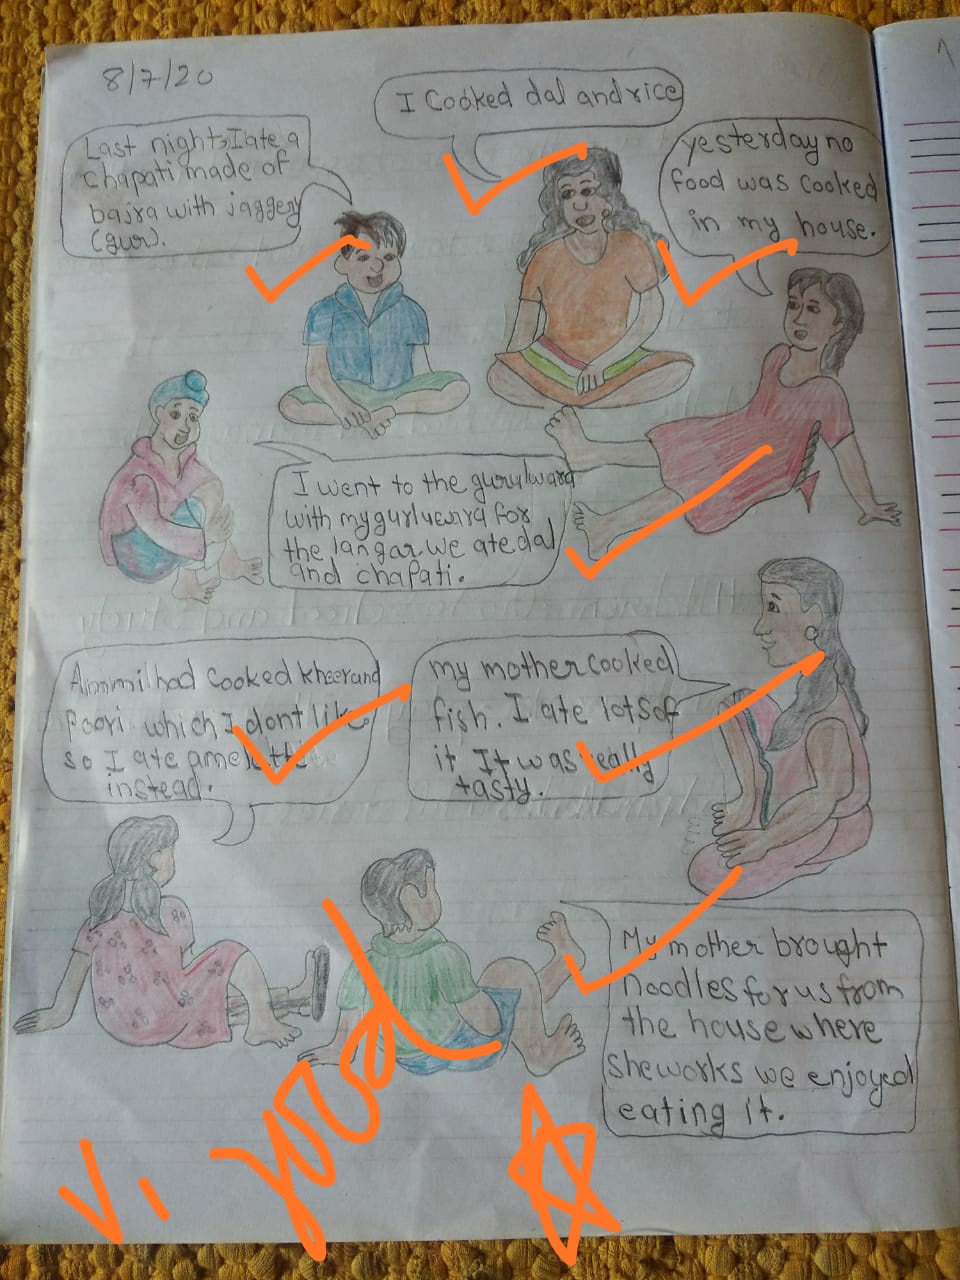 8/7/20
I Cooked dal and rice
Last night I ate a
chapati made of
bajra with jaggery
(gur).
yesterday no
food was cooked
in my house.
I went to the gurudwara
with my gurluwara for
the langar we ate dal
and chapati.
Ammi had cooked kheer and
poori which I dont like
so I ate
instead.
my mother cooked
fish. I ate lots of
it It was really
tasty.
My mother brought
noodles for us from
the house where
she works we enjoyed
eating it.
V. good